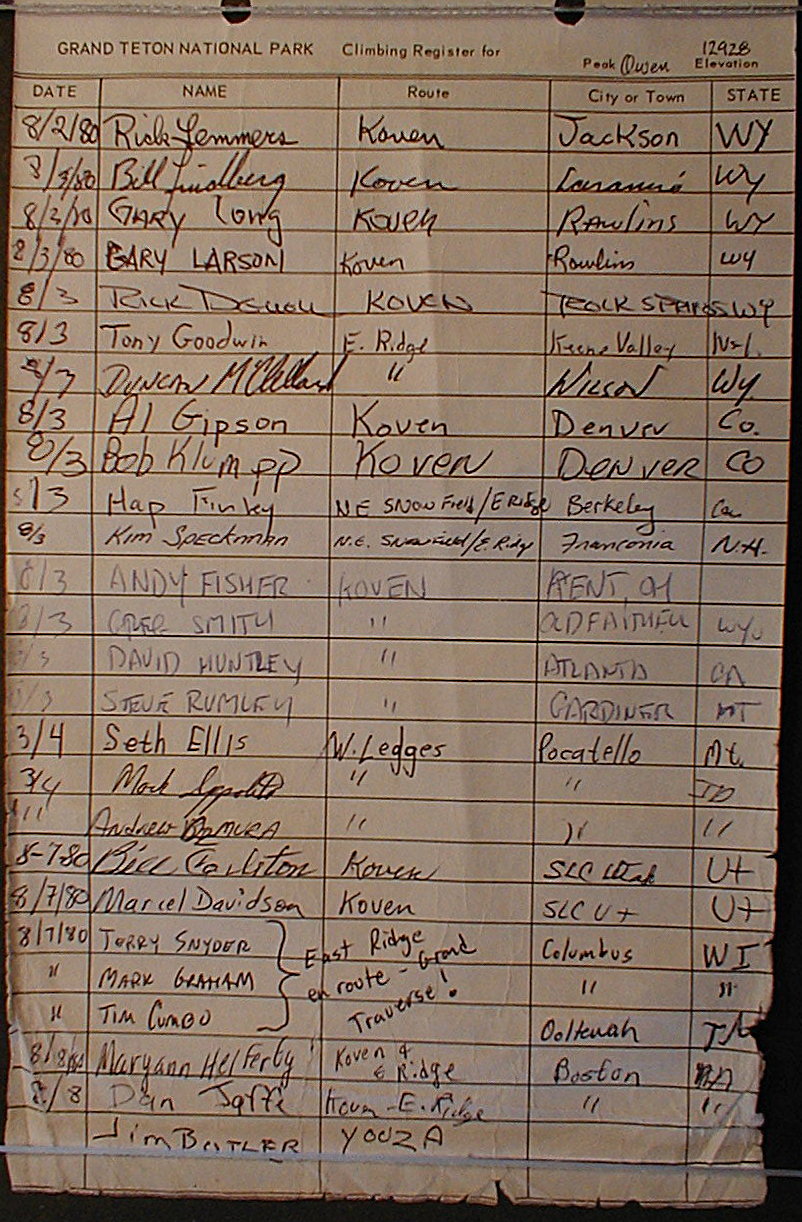 GRAND TETON NATIONAL PARK Climbing Register for Peak Owen 12928 Elevation
DATE NAME Route City or Town STATE
8/2/80 Rick Lemmers Koven Jackson WY
8/3/80 Bill Lindberg Koven Laramie WY
8/3/80 GARY Long KOVEN RAWlins WY
8/3/80 GARY LARSON Koven Rawlins WY
8/3 RICK KOVEN WY
8/3 Tony Goodwin E. Ridge Keene Valley N.Y.
8/3 DUNCAN McClellan " WILSON Wy.
8/3 Al Gipson Koven Denver Co.
8/3 Bob Klumpp KOVEN DENVER CO
8/3 Hap Finley N E SNOW Field / E Ridge Berkeley Ca
8/3 Kim Speckman N.E. Snowfield/E. Ridge Franconia N.H.
8/3 ANDY FISHER KOVEN KENT, OH
8/3 GREG SMITH " OLD FAITHFUL WYO
8/3 DAVID HUNTLEY " ATLANTA GA
8/3 STEVE RUMLEY " GARDINER MT
3/4 Seth Ellis W. Ledges Pocatello
3/4 Mark " " ID
" Andrew " " "
8-7-80 Bill Carlston Koven SLC Utah Ut
8/7/80 Marcel Davidson Koven SLC Ut Ut
8/7/80 TERRY SNYDER East Ridge Columbus WI
" MARK GRAHAM en route - Grand " "
" TIM CUMBO Traverse! Ooltewah TN
8/8/80 Maryann Helferty Koven & E Ridge Boston MA
8/8 Dan Jaffe Koven - E. Ridge " "
Jim BUTLER YOUZA